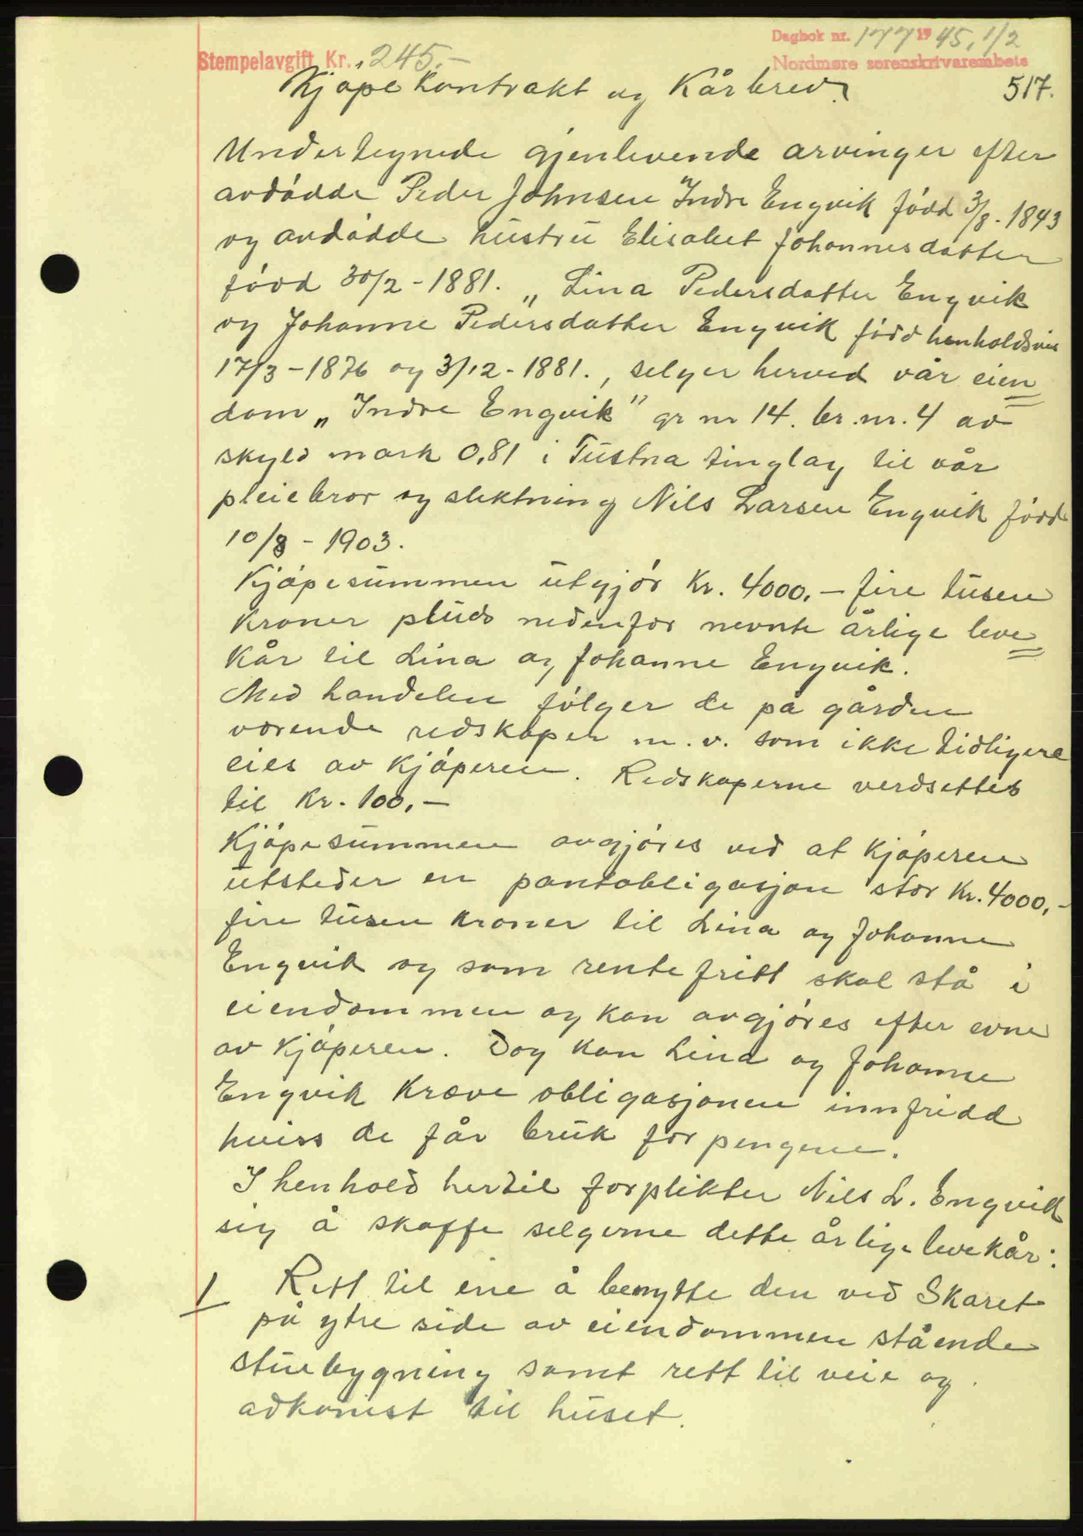 Dagbok nr. 177 1945, 1/2
Stempelavgift Kr. 245.-
Nordmøre sorenskrivarembete
Kjøpekontrakt og Kårbrev.
517.
Undertegnede gjenlevende arvinger efter
avdødde Peder Johnsen Indre Engvik fødd 3/8-1843
og avdødde hustru Elisabet Johannesdatter
fødd 30/2-1881. „ Lina Pedersdatter Engvik
og Johanne Pedersdatter Engvik fødd henholdsvis
17/3-1876 og 3/12-1881., selger herved vår eien
dom „Indre Engvik" gr nr 14. br.nr. 4 av
skyld mark 0,81 i Tustna tinglag til vår
pleiebror og slektning Nils Larsen Engvik fødd
10/8-1903.
Kjøpesummen utgjør Kr. 4000.- fire tusen
kroner pluds nedenfor nevnte årlige leve
kår til Lina og Johanne Engvik.
Med handelen følger de på gården
værende redskaper m.v. som ikke tidligere
eies av kjøperen. Redskaperne verdsettes
til Kr. 100.-
Kjøpesummen avgjøres ved at kjøperen
utsteder en pantobligasjon stor Kr. 4000.-
fire tusen kroner til Lina og Johanne
Engvik og som rentefritt skal stå i
eiendommen og kan avgjøres efter evne
av kjøperen. Dog kan Lina og Johanne
Engvik kræve obligasjonen innfridd
hviss de får bruk for pengene.
I henhold hertil forplikter Nils L. Engvik
sig å skaffe selgerne dette årlige levekår:
1 Rett til ene å benytte den ved Skaret
på ytre side av eiendommen stående
stuebygning samt rett til veie og
adkomst til huset.